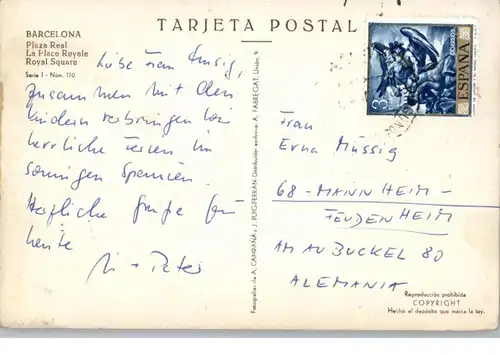 TARJETA POSTAL
BARCELONA
Plaza Real
La Place Royale
Royal Square
Serie I - Núm. 110
Liebe Frau Müssig,
zusammen mit den
Kindern verbringen wir
herrliche Ferien im
sonnigen Spanien
Herzliche Grüße für
heute
Peter
Fotografías de A. CAMPAÑÁ y J. PUIG-FERRÁN Distribuidor exclusivo: A. FABREGAT, Unión, 9
3
CORREOS
ESPAÑA
Frau
Erna Müssig
68-MANNHEIM-
FEUDENHEIM
AM AUBUCKEL 80
ALEMANIA
Reproducción prohibida
COPYRIGHT
Hecho el depósito que marca la ley.